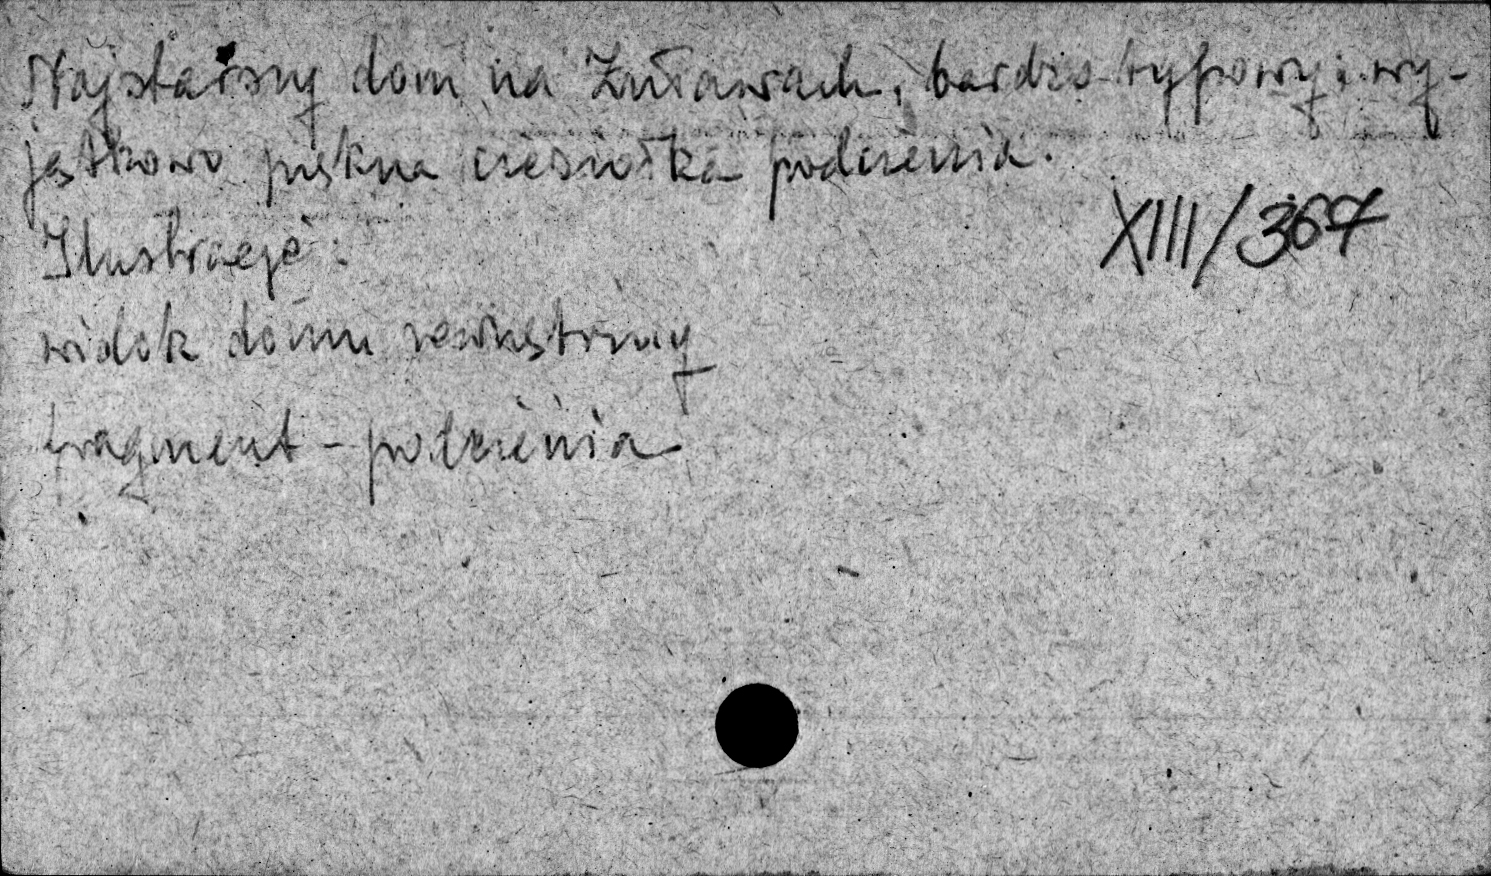 Najstarszy dom na Żuławach, bardzo typowy i wy-
jątkowo piękna ciesiołka podcienia.
XIII/367
Ilustracje:
widok domu zewnętrzny
fragment - podcienia